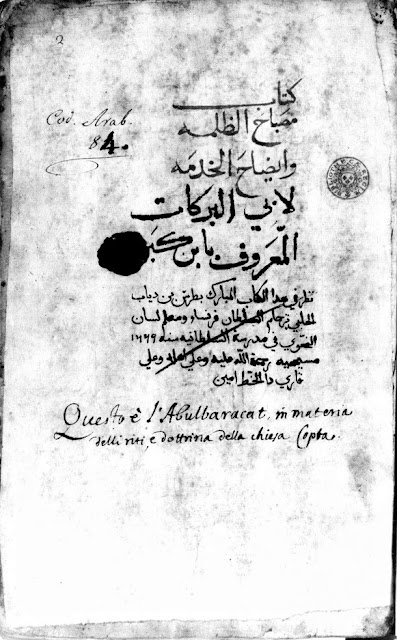 2
Cod. Arab.
84.
كتاب
مصباح الظلمه
وايضاح الخدمه
لابي البركات
المعروف بابن كبر
نظر في هذا الكتاب المبارك بطرس بن دياب
الحلبي ترجمان السلطان فرنسا ومعلم لسان
في مدرسة السلطانيه سنه ١٦٦٩
مسيحيه رحمة الله عليه وعلي اهله وعلي
قاري دا الخط امين
Questo è l'Abulbaracat, in materia
delli riti, e dottrina della chiesa Copta.